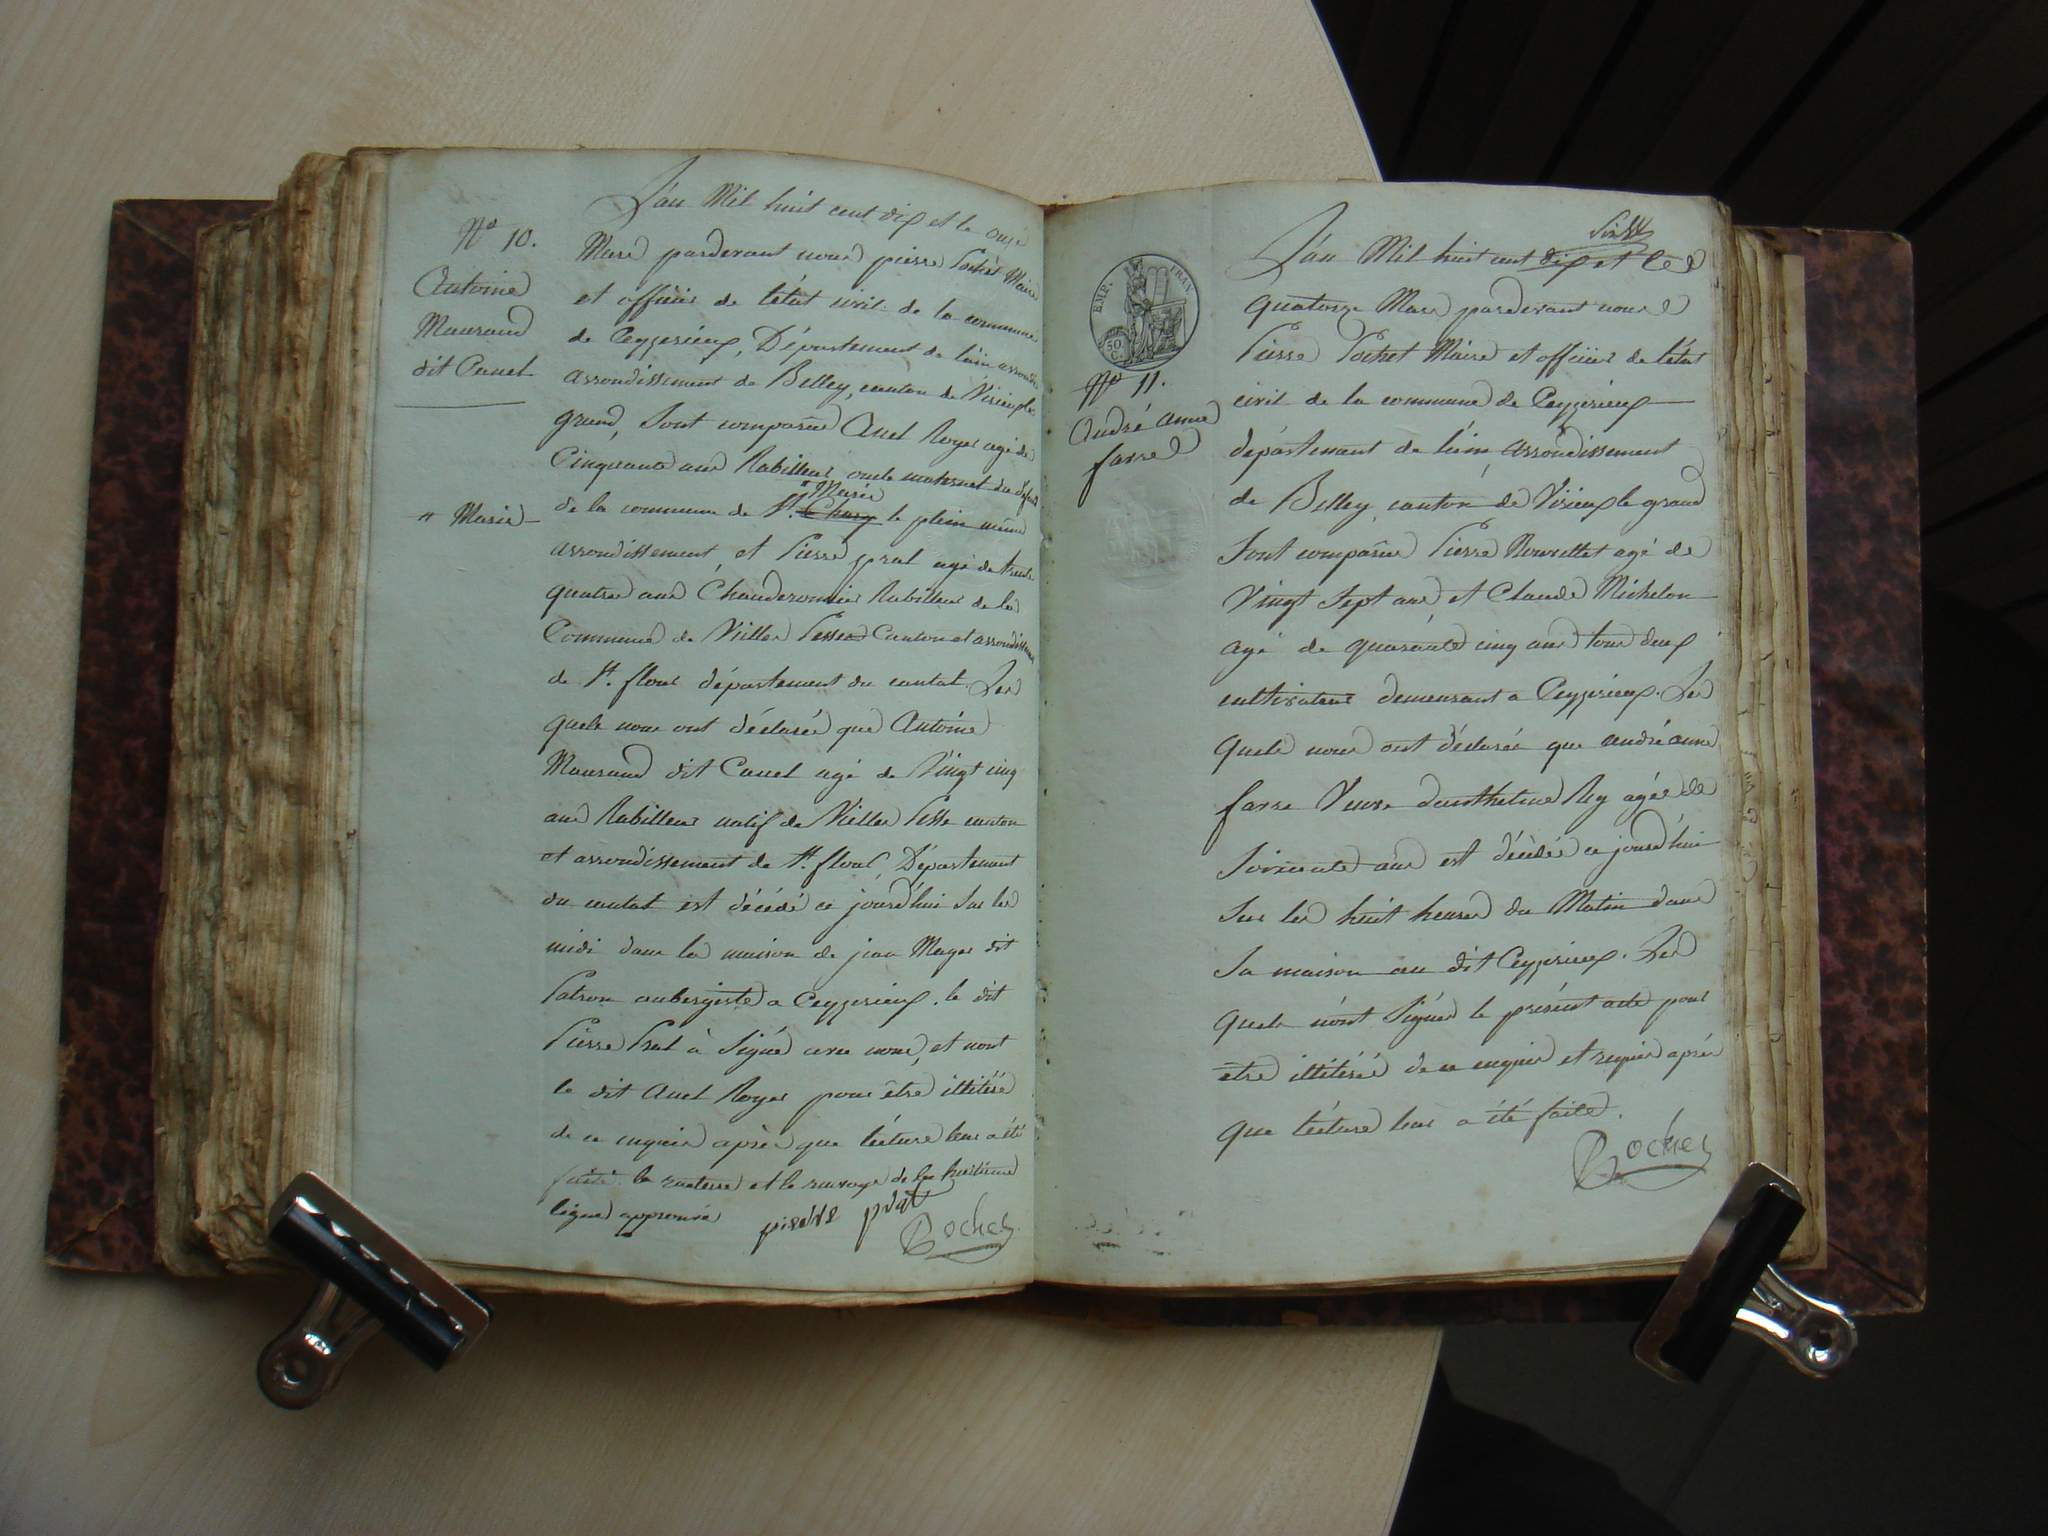 Nº 10.
Antoine
Mauraud
dit Canel
" Marie
L'an Mil huit cent dix et le onze
Mars pardevant nous pierre Pochet Maire
et officier de l'état civil de la commune
de Ceyzerieux, Département de l'ain arrondis
arrondissement de Belley, canton de Virieux le
grand, Sont comparus Auel Royer agé de
Cinquante ans Rabilleur oncle maternel du défunt
" Marie
de la commune de St. Chury le plein même
arrondissement, et Pierre prat agé de trente
quatre ans Chauderonnier Rabilleur de la
Commune de Vielles Pesse Canton et arrondissement
de St. flour département du cantal. Les
quels nous ont déclaré que Antoine
Mauraud dit Canel agé de Vingt cinq
ans Rabilleur natif de Vielles Pesse canton
et arrondissement de St. flour, Département
du cantal est décédé ce jourd'hui Sur les
midi dans la maison de jean Mayer dit
Patron aubergiste a Ceyzerieux. le dit
Pierre Prat à Signé avec nous, et nont
le dit Auel Royer pour être illitéré
de ce enquis après que lécture leur a été
faite la rature et le renvoye de la huitième
ligne approuvée
pierre prat
Pochet
EMP. FRAN
50
C.
Nº 11.
André anne
farre
L'an Mil huit cent dix et le
quatorze Mars pardevant nous
Pierre Pochet Maire et officier de l'état
civil de la commune de Ceyzerieux
département de l'ain, arrondissement
de Belley, canton de Virieux le grand
Sont comparus Pierre Nouvellet agé de
Vingt Sept ans et Claude Michelon
agé de quarante cinq ans tous deux
cultivateurs demeurant a Ceyzerieux. Les
quels nous ont déclaré que andré anne
farre Veuve d'anthelme Rey agée de
Soixante ans est décédée ce jourd'hui
Sur les huit heures du Matin dans
Sa maison au dit Ceyzerieux. Les
quels n'ont Signés le présent acte pour
etre illitérés de ce enquis et requis après
que lécture leur a été faite.
Pochet